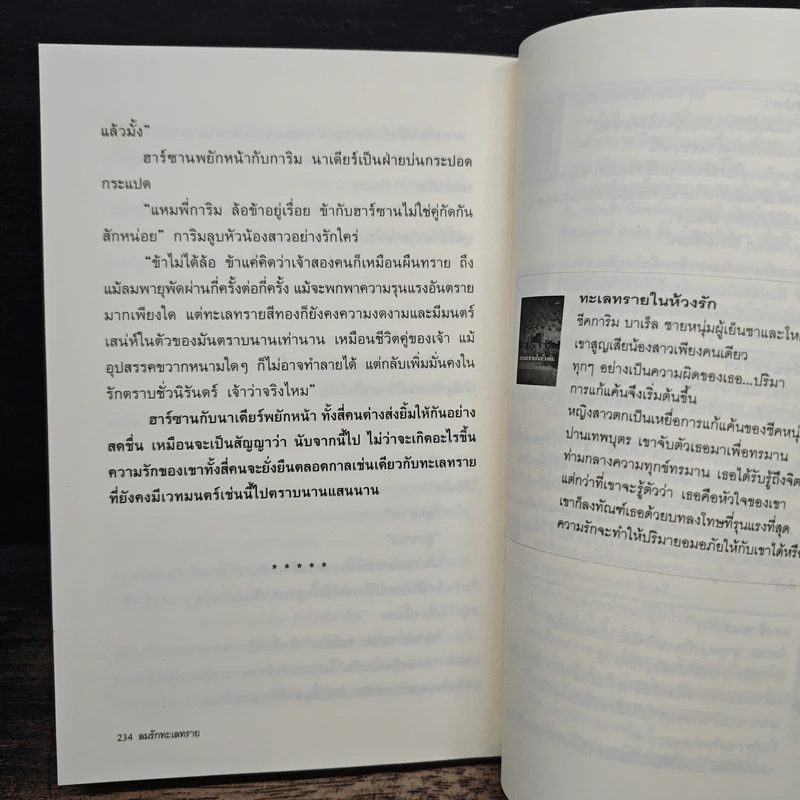 แล้วมั้ง"
ฮาร์ซานพยักหน้ากับการิม นาเดียร์เป็นฝ่ายบ่นกระปอด
กระแปด
"แหมพี่การิม ล้อข้าอยู่เรื่อย ข้ากับฮาร์ซานไม่ใช่คู่กัดกัน
สักหน่อย" การิมลูบหัวน้องสาวอย่างรักใคร่
"ข้าไม่ได้ล้อ ข้าแค่คิดว่าเจ้าสองคนก็เหมือนผืนทราย ถึง
แม้ลมพายุพัดผ่านกี่ครั้งต่อกี่ครั้ง แม้จะพกพาความรุนแรงอันตราย
มากเพียงใด แต่ทะเลทรายสีทองก็ยังคงความงดงามและมีมนตร์
เสน่ห์ในตัวของมันตราบนานเท่านาน เหมือนชีวิตคู่ของเจ้า แม้
อุปสรรคขวากหนามใดๆ ก็ไม่อาจทำลายได้ แต่กลับเพิ่มมั่นคงใน
รักตราบชั่วนิรันดร์ เจ้าว่าจริงไหม"
ฮาร์ซานกับนาเดียร์พยักหน้า ทั้งสี่คนต่างส่งยิ้มให้กันอย่าง
สดชื่น เหมือนจะเป็นสัญญาว่า นับจากนี้ไป ไม่ว่าจะเกิดอะไรขึ้น
ความรักของเขาทั้งสี่คนจะยั่งยืนตลอดกาลเช่นเดียวกับทะเลทราย
ที่ยังคงมีเวทมนตร์เช่นนี้ไปตราบนานแสนนาน
* * * * *
234 ลมรักทะเลทราย
ทะเลทรายในห้วงรัก
ชีคการิม บาเร็ล ชายหนุ่มผู้เย็นชาและ
เขาสูญเสียน้องสาวเพียงคนเดียว
ทุกๆ อย่างเป็นความผิดของเธอ...ปริมา
การแก้แค้นจึงเริ่มต้นขึ้น
หญิงสาวตกเป็นเหยื่อการแก้แค้นของชีค
ปานเทพบุตร เขาจับตัวเธอมาเพื่อทรมาน
ท่ามกลางความทุกข์ทรมาน เธอได้รับรู้ถึง
แต่กว่าที่เขาจะรู้ตัวว่า เธอคือหัวใจของเขา
เขาก็ลงทัณฑ์เธอด้วยบทลงโทษที่รุนแรงที่สุด
ความรักจะทำให้ปริมายอมอภัยให้กับเขาได้